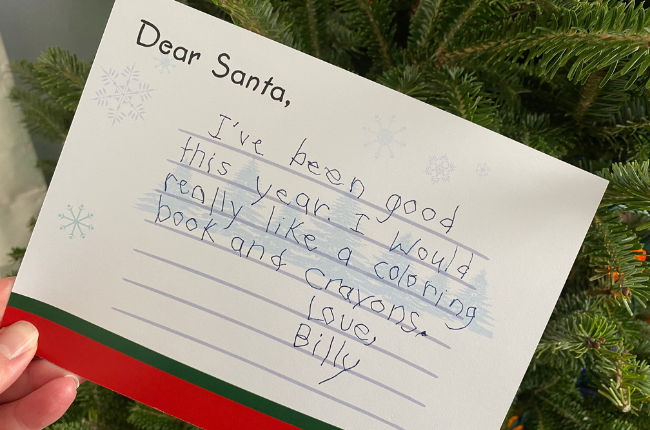 Dear Santa,
I've been good
this year. I would
really like a coloring
book and crayons.
Love,
Billy